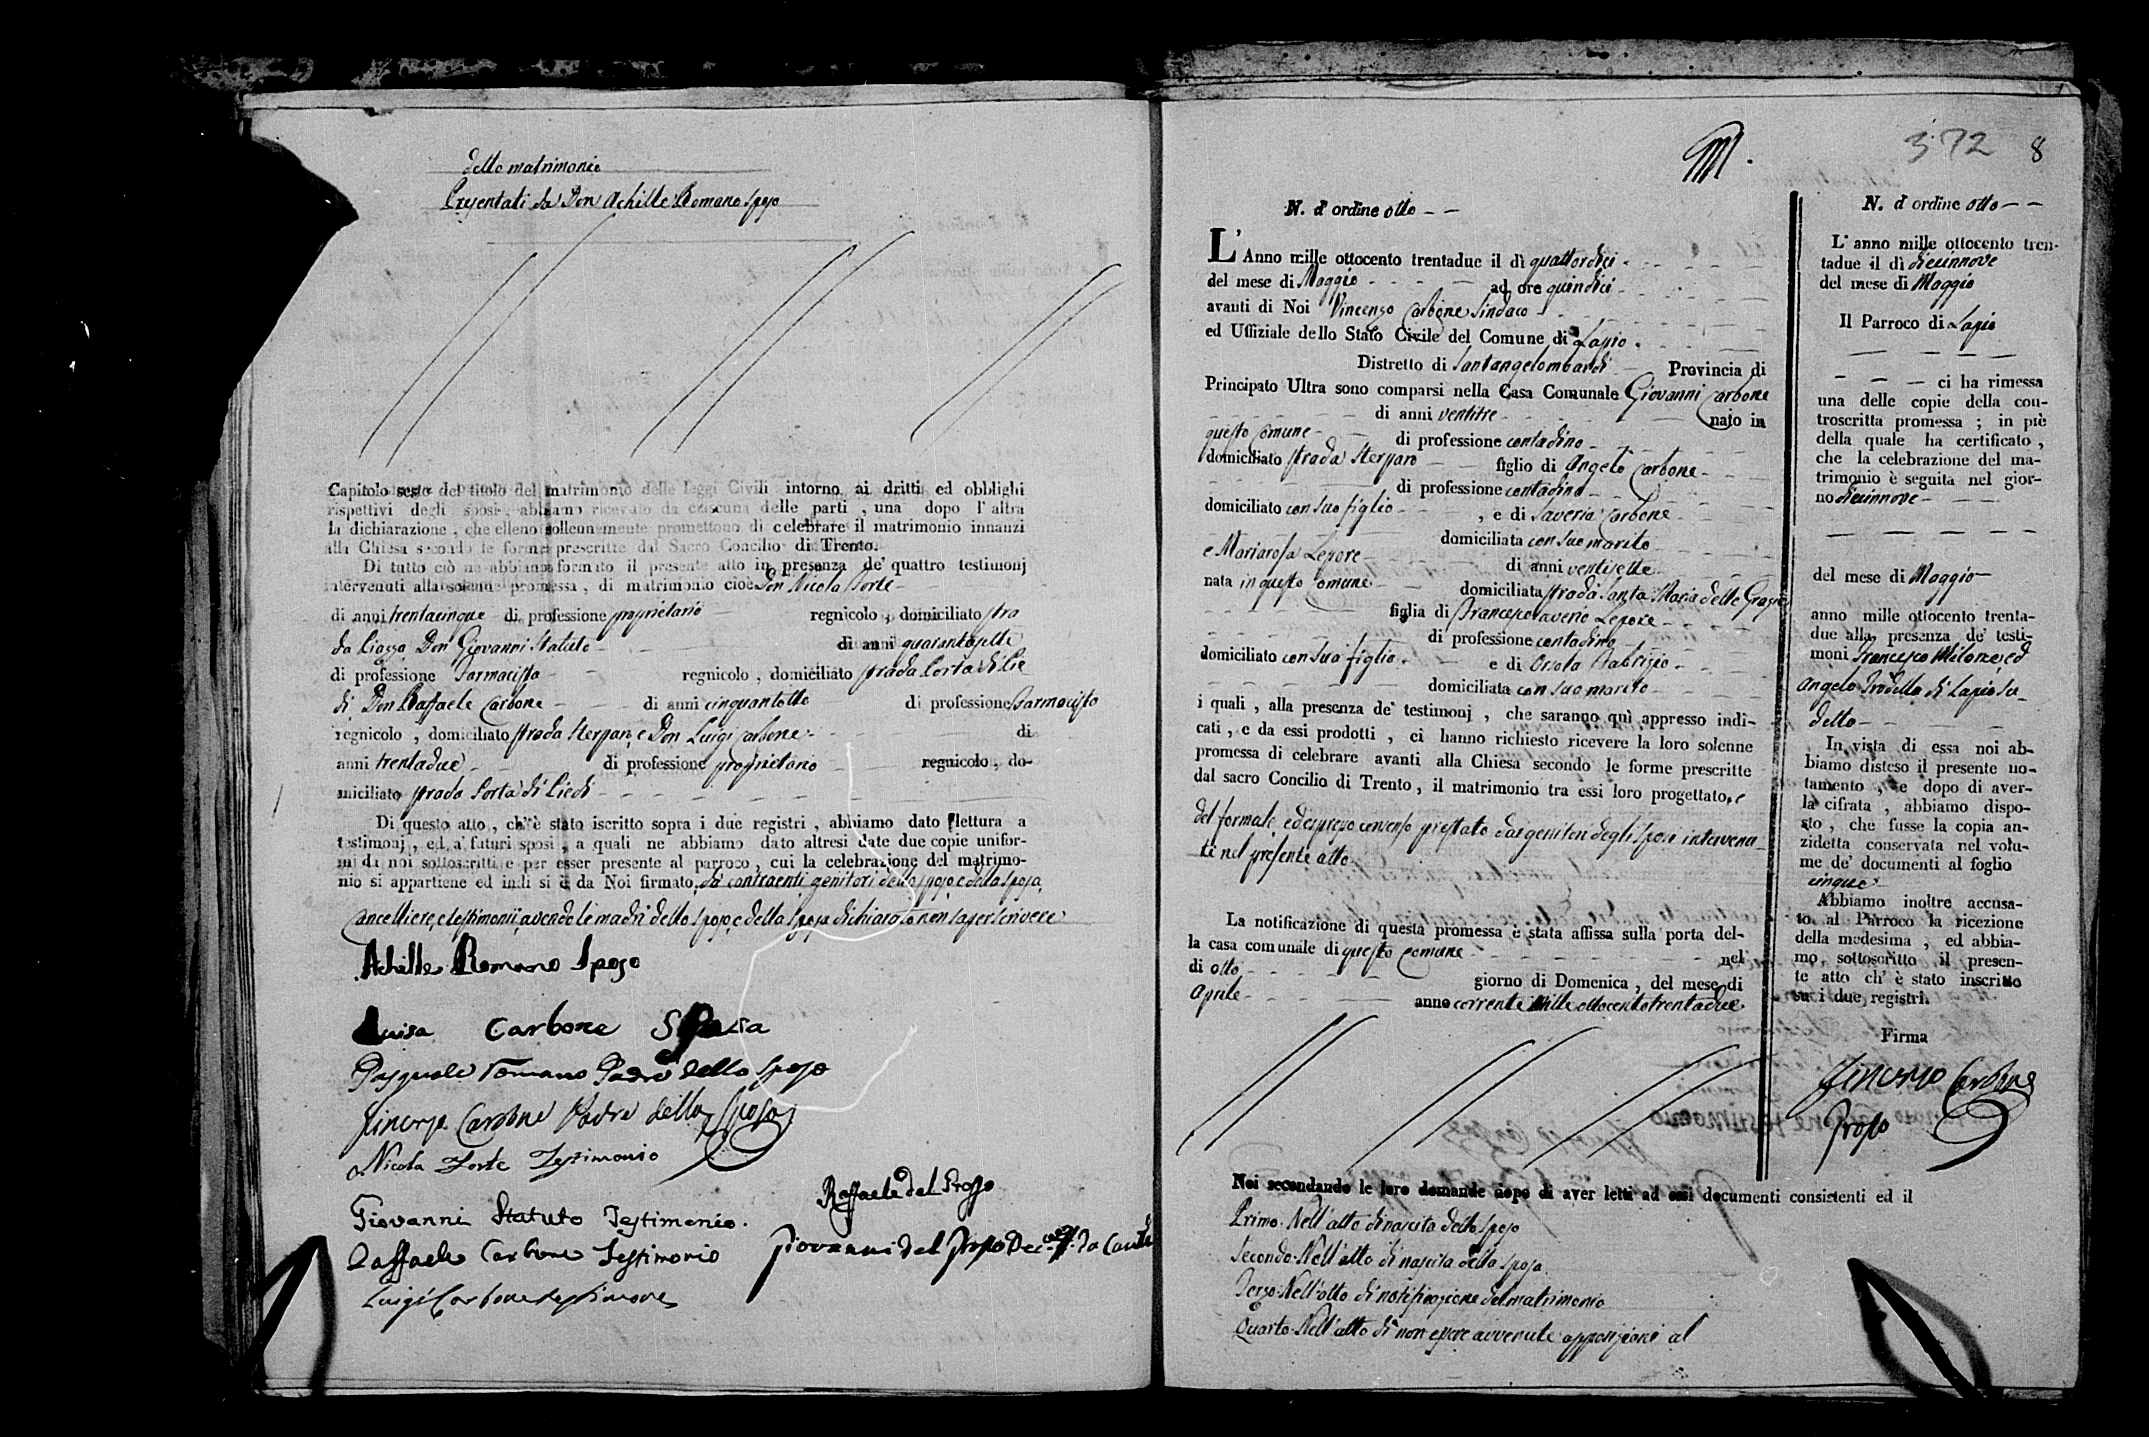 dello matrimonio
Presentati da Don Achille Romano Sposo
Capitolo sesto del titolo del matrimonio delle leggi Civili intorno ai dritti ed obblighi
rispettivi degli sposi, abbiamo ricevuto da ciascuna delle parti, una dopo l'altra
la dichiarazione, che elleno sollennemente promettono di celebrare il matrimonio innanzi
alla Chiesa secondo le forme prescritte dal Sacro Concilio di Trento.
Di tutto ciò ne abbiamo formato il presente atto in presenza de' quattro testimonj
intervenuti alla solenne promessa, di matrimonio cioè Don Nicola Forte
di anni trentacinque di professione proprietario regnicolo, domiciliato stra
da Piazza Don Giovanni Statuto di anni quarantasette
di professione Farmacista regnicolo, domiciliato strada Porta di Pie
di Don Raffaele Carbone di anni cinquantotto di professione Farmacista
regnicolo, domiciliato strada Sterparo, e Don Luigi Carbone di
anni trentadue di professione proprietario regnicolo, do-
miciliato strada Porta di Piedi
Di questo atto, ch'è stato iscritto sopra i due registri, abbiamo dato lettura a
testimonj, ed a' futuri sposi, a quali ne abbiamo dato altresì date due copie unifor-
mi da noi sottoscritti e per esser presente al parroco, cui la celebrazione del matrimo-
nio si appartiene ed indi si è da Noi firmato, da contraenti genitori dello sposo, e della sposa,
Cancelliere, e testimonii, avendo le madri dello sposo, e della sposa dichiarato non saper scrivere
Achille Romano Sposo
Luisa Carbone Sposa
Pasquale Romano Padre dello Sposo
Vincenzo Carbone Padre della Sposa
Nicola Forte Testimonio
Raffaele del Grosso
Giovanni Statuto Testimonio.
Giovanni del Grosso
Raffaele Carbone Testimonio
Luigi Carbone testimone
372 8
N. d'ordine otto
L'Anno mille ottocento trentadue il dì quattordici
del mese di Maggio ad ore quindici
avanti di Noi Vincenzo Carbone Sindaco
ed Uffiziale dello Stato Civile del Comune di Lapio
Distretto di Santangelombardi Provincia di
Principato Ultra sono comparsi nella Casa Comunale Giovanni Carbone
di anni ventitre nato in
questo Comune di professione contadino
domiciliato strada Sterparo figlio di Angelo Carbone
di professione contadino
domiciliato con suo figlio, e di Saveria Carbone
domiciliata con suo marito
e Mariarosa Lepore di anni ventisette
nata in questo Comune domiciliata strada Santa Maria delle Grazie
figlia di Francescosaverio Lepore
di professione contadino
domiciliato con sua figlia e di Orsola Fabrizio
domiciliata con suo marito
i quali, alla presenza de' testimonj, che saranno quì appresso indi-
cati, e da essi prodotti, ci hanno richiesto ricevere la loro solenne
promessa di celebrare avanti alla Chiesa secondo le forme prescritte
dal sacro Concilio di Trento, il matrimonio tra essi loro progettato, e
del formale ed espresso consenso prestato dai genitori degli sposi intervenu
ti nel presente atto
La notificazione di questa promessa è stata affissa sulla porta del-
la casa comunale di questo comune nel
dì otto giorno di Domenica, del mese di
Aprile anno corrente Mille ottocento trentadue
Noi secondando le loro domande dopo di aver letti ad essi documenti consistenti ed il
Primo. Nell'atto di nascita dello sposo
Secondo. Nell'atto di nascita della sposa
Terzo. Nell'atto di notificazione del matrimonio
Quarto. Nell'atto di non essere avvenute opposizioni al
N. d'ordine otto
L'anno mille ottocento tren-
tadue il dì diecinnove
del mese di Maggio
Il Parroco di Lapio
ci ha rimessa
una delle copie della con-
troscritta promessa; in piè
della quale ha certificato,
che la celebrazione del ma-
trimonio è seguita nel gior-
no diecinnove
del mese di Maggio
anno mille ottocento trenta-
due alla presenza de' testi-
moni Francesco Milone, ed
Angelo Trodella di Lapio su
detto
In vista di essa noi ab-
biamo disteso il presente no-
tamento, e dopo di aver-
la cifrata, abbiamo dispo-
sto, che fusse la copia an-
zidetta conservata nel volu-
me de' documenti al foglio
cinque
Abbiamo inoltre accusa-
to al Parroco la ricezione
della medesima, ed abbia-
mo sottoscritto il presen-
te atto ch'è stato inscritto
su i due registri.
Firma
Vincenzo Carbone